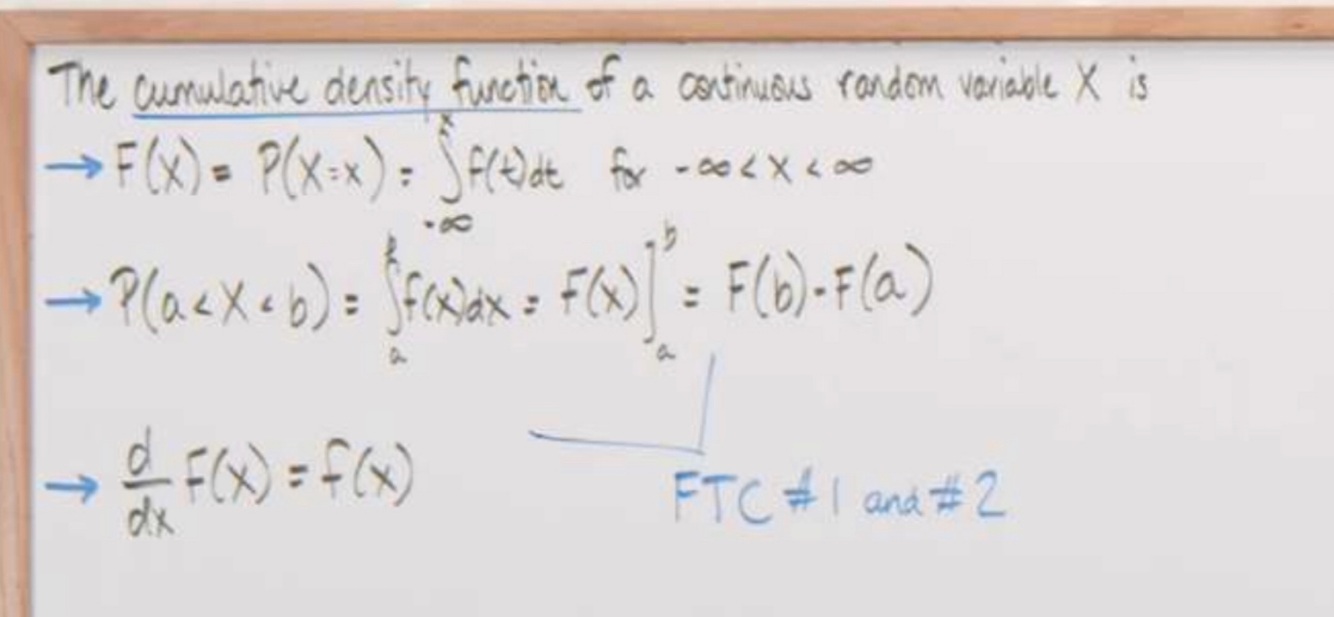 The cumulative density function of a continuous random variable X is
→ F(x) = P(X=x) = ∫_{-∞}^{x} f(t)dt for -∞ < x < ∞
→ P(a<X<b) = ∫_{a}^{b} f(x)dx = F(x)]_{a}^{b} = F(b)-F(a)
→ d/dx F(x) = f(x)
FTC #1 and #2